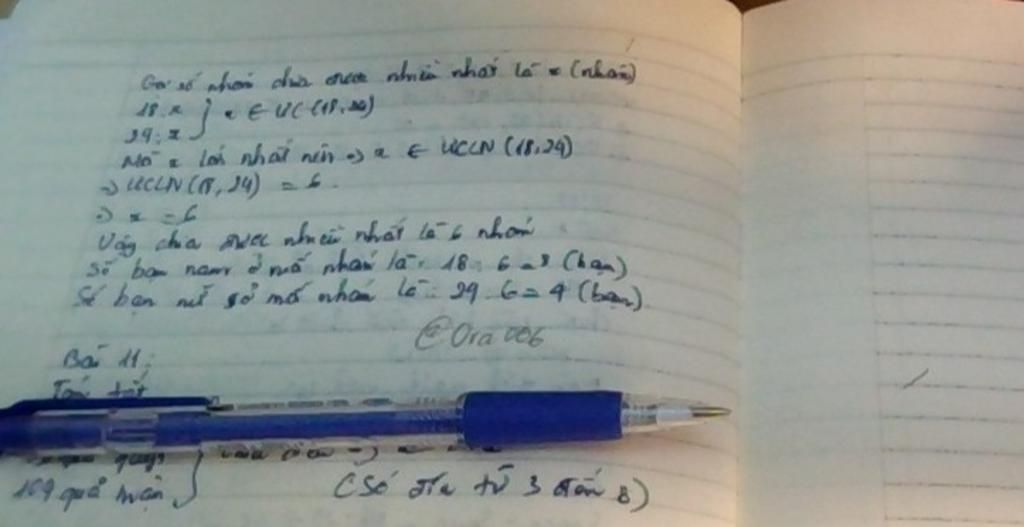 Gọi số nhóm chia được nhiều nhất là x (nhóm)
18 : x } x ∈ ƯC (18, 24)
24 : x
Mà x lớn nhất nên => x ∈ ƯCLN (18,24)
=> ƯCLN (18, 24) = 6
=> x = 6
Vậy chia được nhiều nhất là 6 nhóm
Số bạn nam ở mỗi nhóm là: 18 : 6 = 3 (bạn)
Số bạn nữ ở mỗi nhóm là: 24 : 6 = 4 (bạn)
@Ora006
Bài 11:
Tóm tắt
quả quýt
104 quả mận } (Số đĩa từ 3 đến 8)